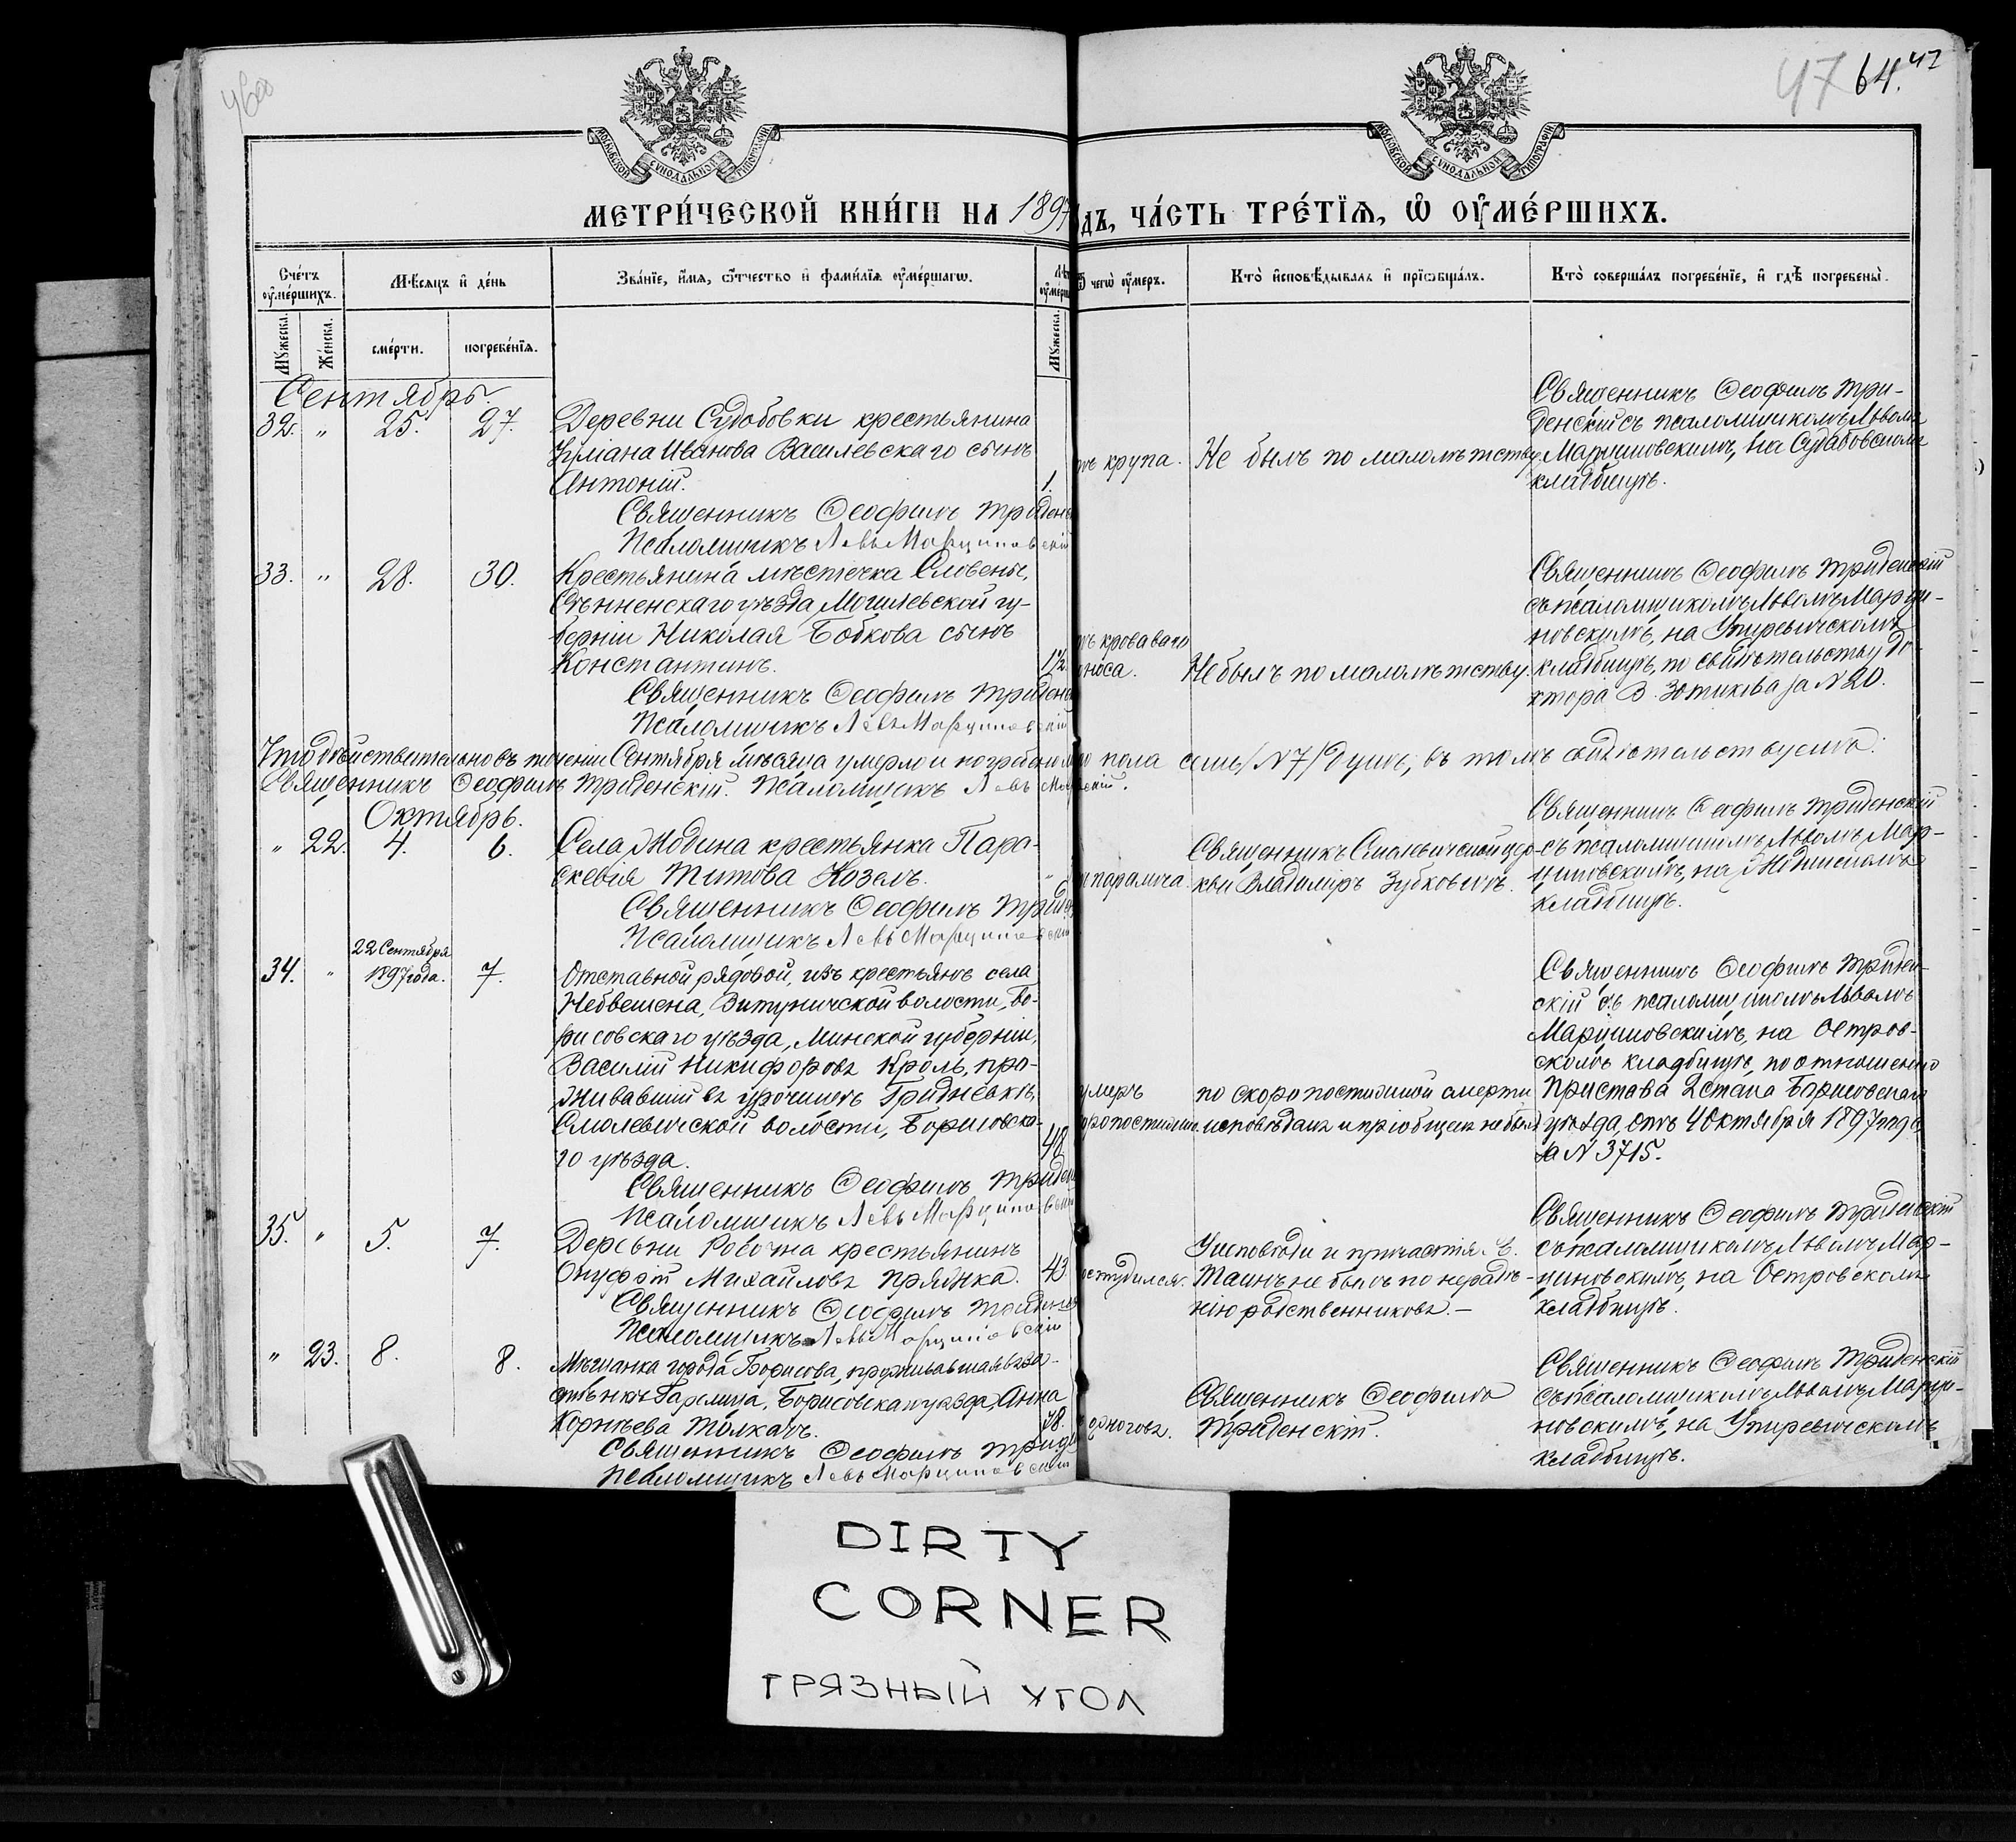 4600
47 64. 47
МОСКОВСКОЙ СѴНОДАЛЬНОЙ ТИПОГРАФІИ
МОСКОВСКОЙ СѴНОДАЛЬНОЙ ТИПОГРАФІИ
МЕТРИ́ЧЕСКОЙ КНИ́ГИ НА 1897
дъ, ЧА́СТЬ ТРЕ́ТЇѦ, Ѡ҆ ОУ҆МЕ́РШИХЪ.
Сче́тъ оу҆ме́ршихъ.
Мѣ́сяцъ и҆ де́нь
Зва́нїе, и҆́мѧ, ѻ҆́тчество и҆ фами́лїѧ оу҆ме́ршагѡ.
Ѿ чегѡ̀ оу҆́меръ.
Кто̀ и҆сповѣ́дывалъ и҆ прїѡбща́лъ.
Кто̀ соверша́лъ погребе́нїе, и҆ гдѣ̀ погребены̀.
Мꙋ́жеска.
Же́нска.
сме́рти.
погребе́нїѧ.
Мꙋ́жеска.
Сентябрь
32. " 25. 27.
Деревни Судобовки крестьянина
Иванова Василевскаго сынъ
Антоній. 1.
Священникъ Ѳеофилъ Триденс
Псаломщикъ Левъ Марциновскій
крупа.
Не былъ по малолѣтству
Священникъ Ѳеофилъ Три-
денскій съ псаломщикомъ Львомъ
Марциновскимъ, на Судабовскомъ
кладбищѣ.
33. " 28. 30.
Крестьянина мѣстечка Словены,
Сѣнненскаго уѣзда, Могилевской гу-
берніи Николая Бобкова сынъ
Константинъ. 1½
Священникъ Ѳеофилъ Триденс
Псаломщикъ Левъ Марциновскій
кроваваго
носа.
Не былъ по малолѣтству.
Священникъ Ѳеофилъ Триденскій
съ псаломщикомъ Львомъ Марци-
новскимъ, на Упиревичскомъ
кладбищѣ, по свидѣтельству до-
ктора В. Зотикова за N 20.
Что дѣйствительно въ теченіи Сентября мѣсяца умерло и погребено пола семь /N 7/ душъ, въ томъ свидѣтельствуемъ:
Священникъ Ѳеофилъ Триденскій. Псаломщикъ Левъ Мар скій.
Октябрь.
" 22. 4. 6.
Села Жодина крестьянка Пара-
скевія Титова Козелъ.
Священникъ Ѳеофилъ Триден
Псаломщикъ Левъ Марциновскій
паралича.
Священникъ Смолевичской цер-
кви Владиміръ Зубковичъ.
Священникъ Ѳеофилъ Триденскій
съ псаломщикомъ Львомъ Мар-
циновскимъ, на Жодинскомъ
кладбищѣ.
34. " 22 Сентября
1897 года. 7.
Отставной рядовой, изъ крестьянъ села
Витуничской волости, Бо-
рисовскаго уѣзда, Минской губерніи,
Василій Никифоровъ Кроль, про-
живавшій въ урочищѣ Гридневкѣ,
Смолевичской волости, Борисовска-
го уѣзда. 48
Священникъ Ѳеофилъ Триден
Псаломщикъ Левъ Марциновскій
умеръ
скоропостижно.
по скоропостижной смерти
исповѣданъ и пріобщенъ не былъ
Священникъ Ѳеофилъ Триден-
скій съ псаломщикомъ Львомъ
Марциновскимъ, на Остров-
скомъ кладбищѣ, по отношенію
Пристава 2 стана Борисовскаго
уѣзда, отъ 4 Октября 1897 года
за N 3715.
35. " 5. 7.
Деревни крестьянинъ
Онуфрій Михайловъ Прядка. 43.
Священникъ Ѳеофилъ Триденс
Псаломщикъ Левъ Марциновскій
простудился.
У исповѣди и причастія С.
Таинъ не былъ по нерадѣ-
нію родственниковъ.-
Священникъ Ѳеофилъ Триденскій
съ псаломщикомъ Львомъ Мар-
циновскимъ, на Островскомъ
кладбищѣ.
" 23. 8. 8.
Мѣщанка города Борисова, проживавшая въ за-
стѣнкѣ Борисовскаго уѣзда, Анна
Корнѣева Толкачъ. 38.
Священникъ Ѳеофилъ Триден
Псаломщикъ Левъ Марциновскій
родоговъ.
Священникъ Ѳеофилъ
Триденскій.
Священникъ Ѳеофилъ Триденскій
съ псаломщикомъ Львомъ Марци-
новскимъ, на Упиревичскомъ
кладбищѣ.
DIRTY
CORNER
ГРЯЗНЫЙ УГОЛ